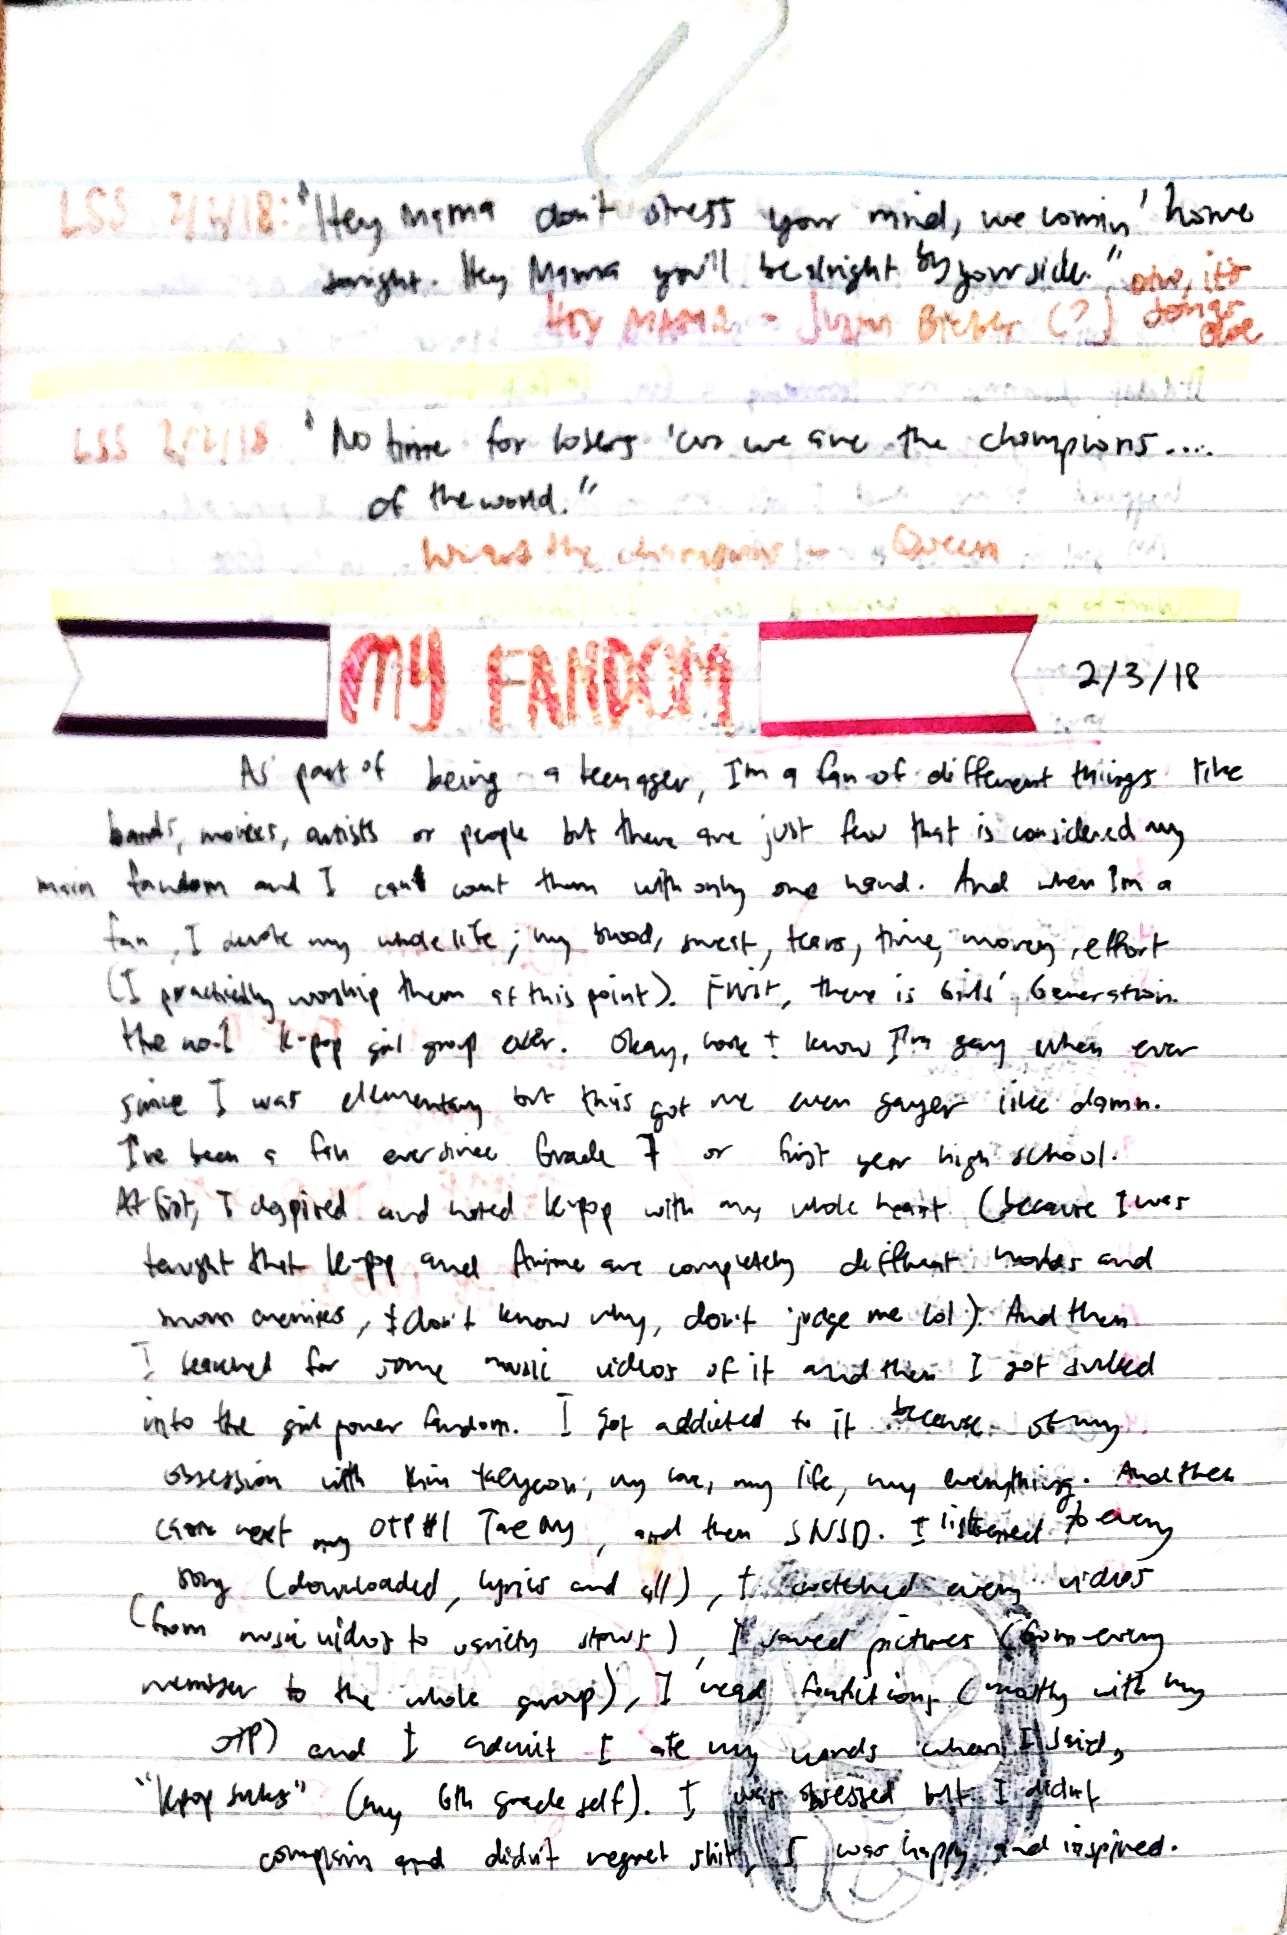 LSS 2/2/18: "Hey Mama don't stress your mind, we comin' home
tonight. Hey Mama you'll be alright by your side."
Hey MAMA - Justin Bieber (?)
LSS 2/2/18 "No time for losers 'cus we are the champions....
of the world."
We are the champions - Queen
MY FANDOM
2/3/18
As part of being a teenager, I'm a fan of different things like
bands, movies, artists or people but there are just few that is considered my
main fandom and I can't count them with only one hand. And when I'm a
fan, I devote my whole life; my blood, sweat, tears, time, money, effort
(I practically worship them at this point). First, there is Girls' Generation.
the no.1 K-pop girl group ever. Okay, look I know I'm gay when ever
since I was elementary but this got me even gayer like damn.
I've been a fan eversince Grade 7 or first year high school.
At first, I despised and hated K-pop with my whole heart (because I was
taught that K-pop and Anime are completely different works and
sworn enemies, I don't know why, don't judge me lol). And then
I searched for some music videos of it and then I got sucked
into the girl power fandom. I got addicted to it because of my
obsession with Kim Taeyeon, my love, my life, my everything. And then
came next my OTP #1 Tae Ny, and then SNSD. I listened to every
song (downloaded, lyrics and all), I watched every videos
(from music videos to variety shows), I saved pictures (from every
member to the whole group), I read fanfictions (mostly with my
OTP) and I admit I ate my words when I said,
"Kpop sucks" (my 6th grade self). I was obsessed but I didn't
complain and didn't regret shit, I was happy and inspired.